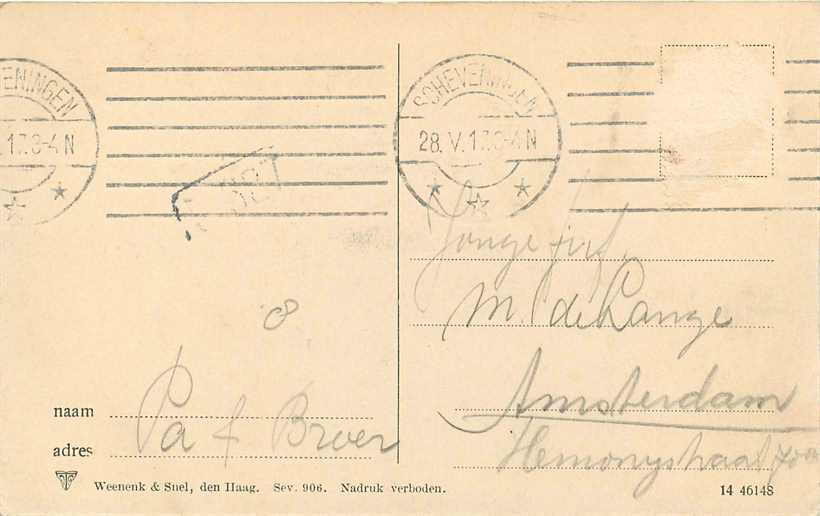 SCHEVENINGEN
28. V. 17.3-4 N
ENINGEN
.17.3-4 N
Jonge juf.
M. de Lange
Amsterdam
Hemonystraat 70
8
naam Pa & Broer
adres
Weenenk & Snel, den Haag. Sev. 906. Nadruk verboden. 14 46148